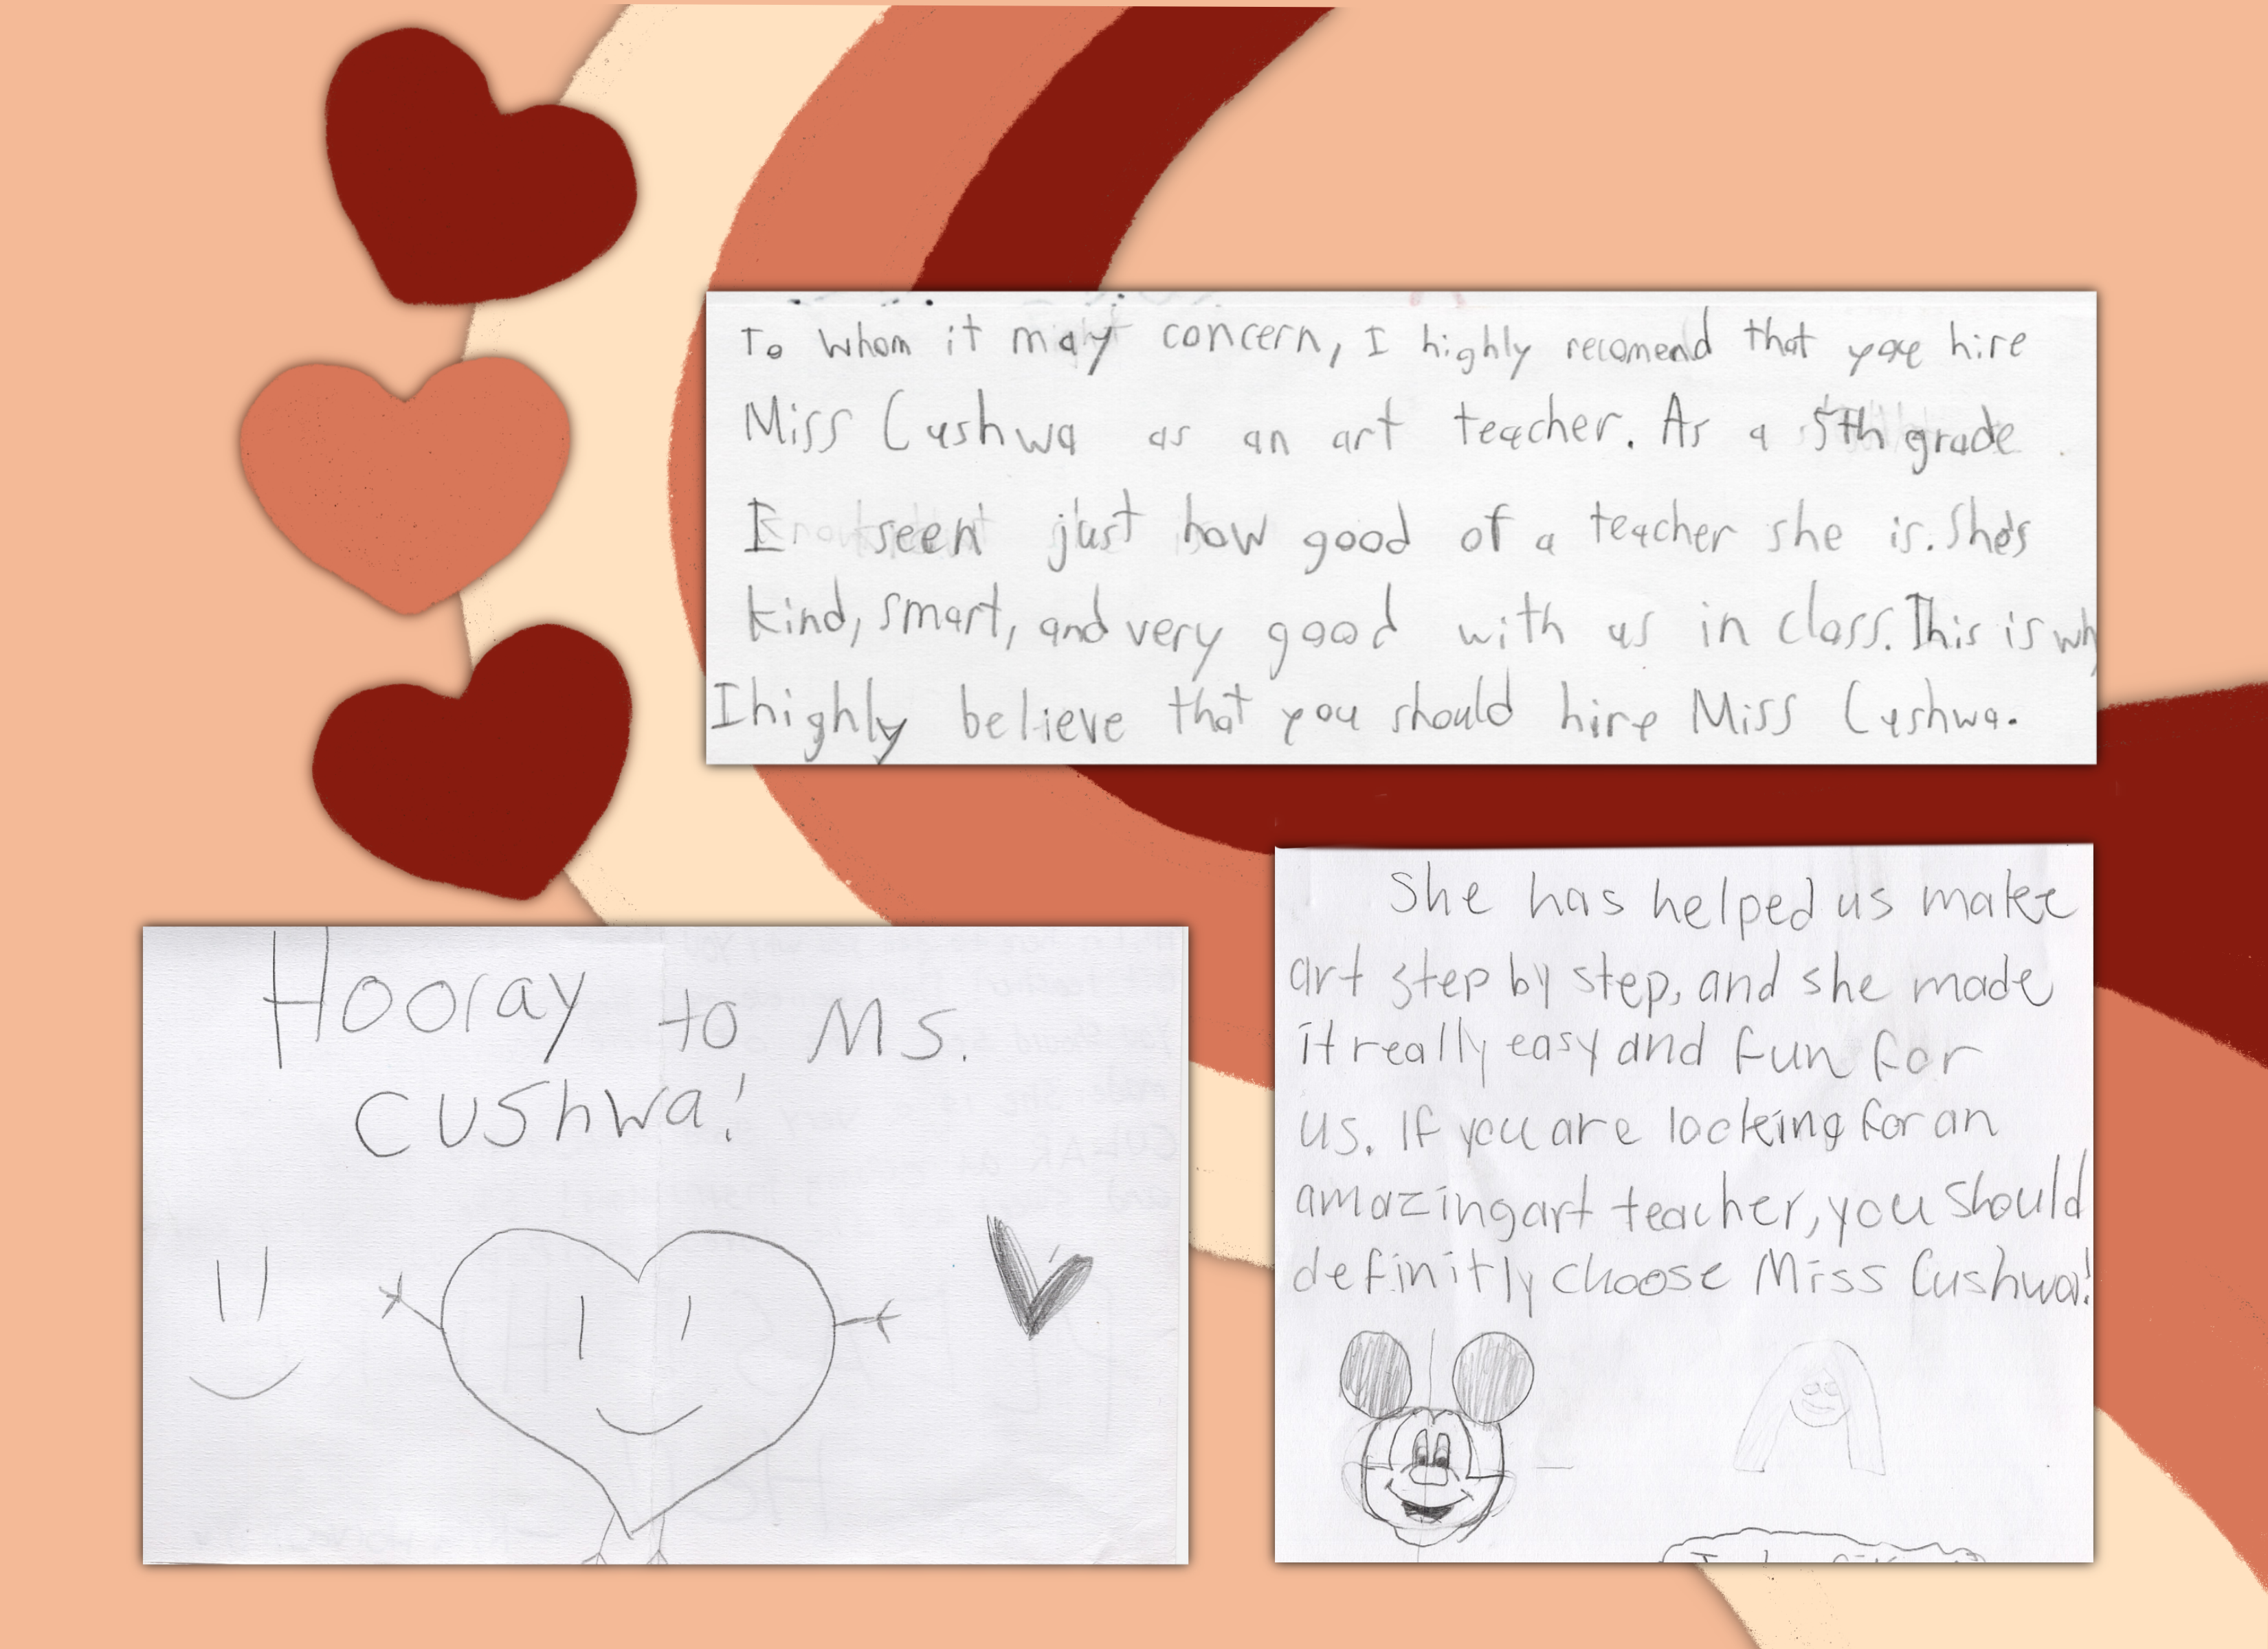 To whom it may concern, I highly recomend that you hire
Miss Cushwa as an art teacher. As a 5th grade
I seen just how good of a teacher she is. She's
kind, smart, and very good with us in class. This is why
I highly believe that you should hire Miss Cushwa.
Hooray to Ms.
Cushwa!
She has helped us make
art step by step, and she made
it really easy and fun for
us. If you are looking for an
amazing art teacher, you should
definitly choose Miss Cushwa!